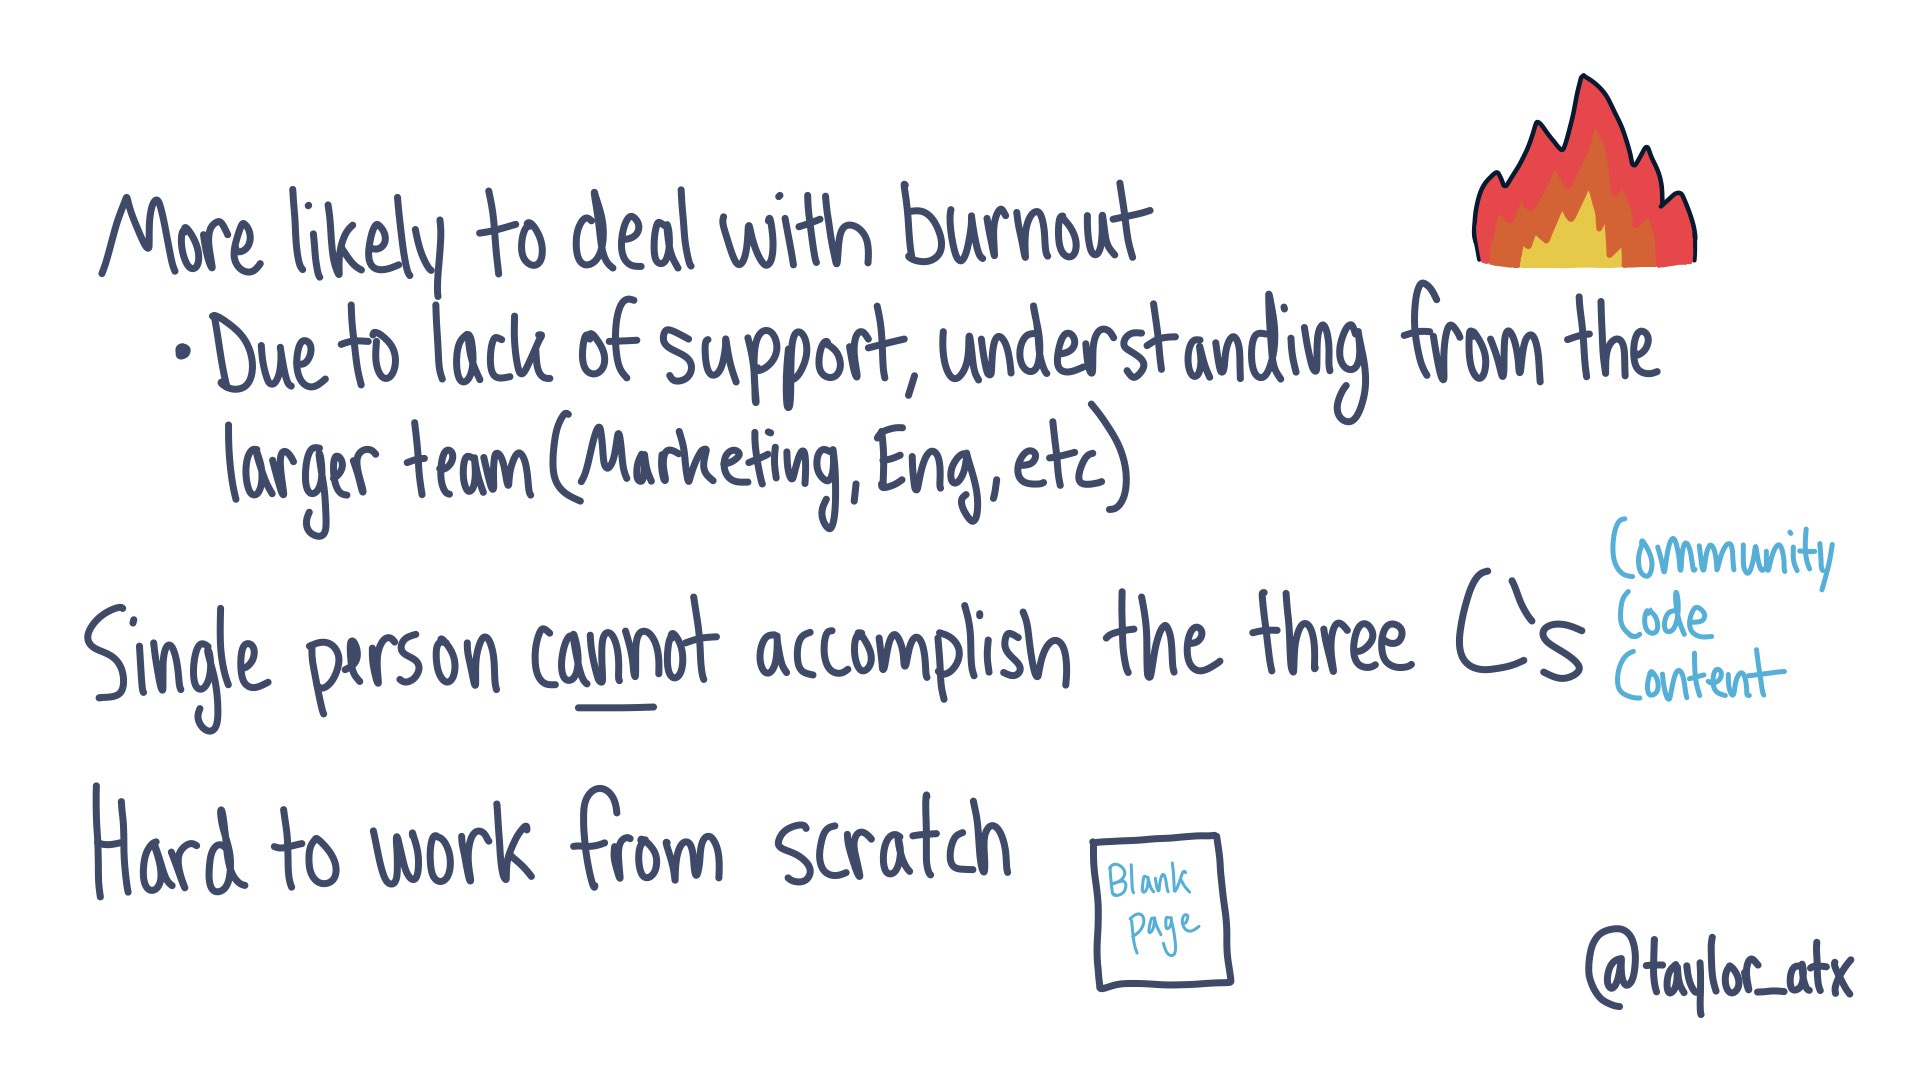 More likely to deal with burnout
• Due to lack of support, understanding from the
larger team (Marketing, Eng, etc)
Single person cannot accomplish the three C's
Community
Code
Content
Hard to work from scratch
Blank
page
@taylor_atx